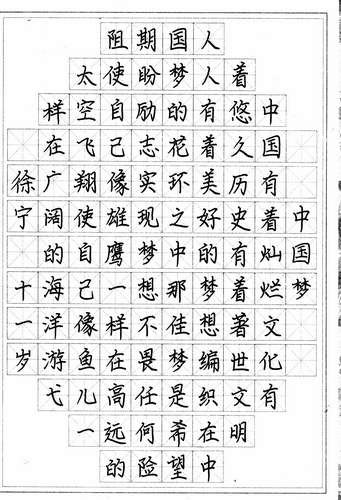 中国梦
中国有着灿烂文化有
着悠久历史有着著世文明
人人有着美好的梦想编织在中
国梦的花环之中那佳梦是希望
期盼励志实现梦想不畏任何险
阻使自己像雄鹰一样在高远的
太空飞翔使自己像鱼儿一
样在广阔的海洋游弋
徐宁十一岁